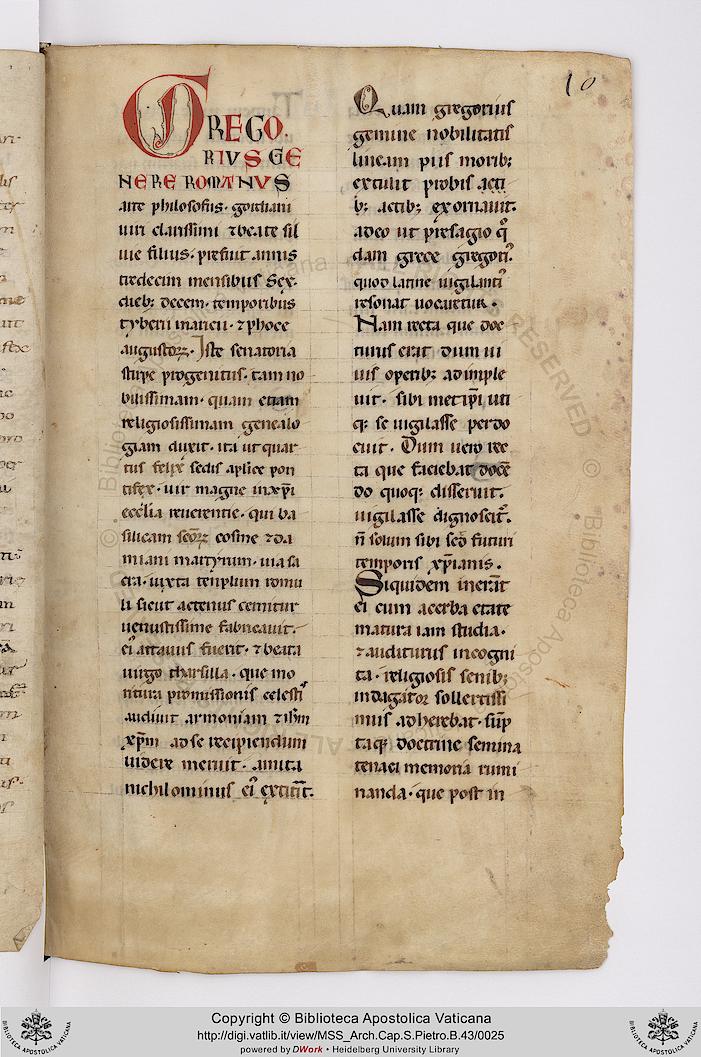 10
GREGO.
RIVS GE
NERE ROMANVS
arte philosofus. gordiani
uiri clarissimi ⁊ beate sil
uie filius. prefuit annis
tredecim mensibus sex.
dieb; decem. temporibus
tyberii mauricii. ⁊ phoce
augustoꝝ. Iste senatoria
stirpe progenitus. tam no
bilissimam. quam etiam
religiosissimam genealo
giam duxit. ita ut quar
tus felix sedis aplice pon
tifex. uir magne in xp̄i
ecclia reuerentie. qui ba
silicam scoꝝ cosme ⁊ da
miani martyrum. uia sa
cra. iuxta templum romu
li sicut actenus cernitur
uenustissime fabricauit.
ei' attauus fuerit. ⁊ beata
uirgo tharsilla. que mo
ritura promissionis celestis
audiuit armoniam ⁊ ih̄m
xp̄m ad se recipiendum
uidere meruit. amita
nichilominus ei' extitit.
Quam gregorius
gemine nobilitatis
lineam piis morib;
extulit probis acti
b; actib; exornauit.
adeo ut presagio q̊
dam grece gregori'.
quod latine uigilanti'
resonat uocaretur.
Nam recta que doc
turus erat dum ui
uis operib; adimple
uit. sibi metip̄i uti
q; se uigilasse perdo
cuit. Dum uero rec
ta que faciebat docē
do quoq; disseruit.
uigilasse dignoscit'.
n̄ solum sibi sed futuri
temporis xp̄ianis.
Siquidem inerāt
ei cum acerba etate
matura iam studia.
⁊ auditurus incogni
ta. religiosis senib;
indagator sollertissi
mus adherebat. sūp
taq; doctrine semina
tenaci memoria rumi
nanda. que post in
Copyright © Biblioteca Apostolica Vaticana
http://digi.vatlib.it/view/MSS_Arch.Cap.S.Pietro.B.43/0025
powered by DWork • Heidelberg University Library